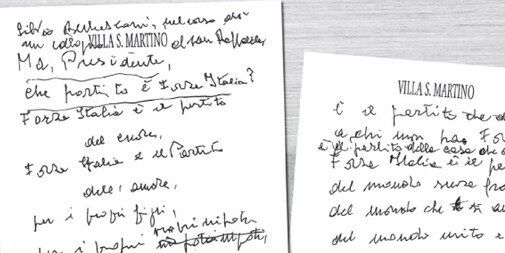 Silvio Berlusconi, nel corso di
un colloquio al San Raffaele,
VILLA S. MARTINO
Ma, Presidente,
che partito è Forza Italia?
Forza Italia è il partito
del cuore,
Forza Italia è il Partito
dell'amore,
per i propri figli,
propri nipoti
per i propri
VILLA S. MARTINO
è il partito che
a chi non ha
è il partito della casa che
Forza Italia è il
del mondo senza
del mondo che si
del mondo unito e